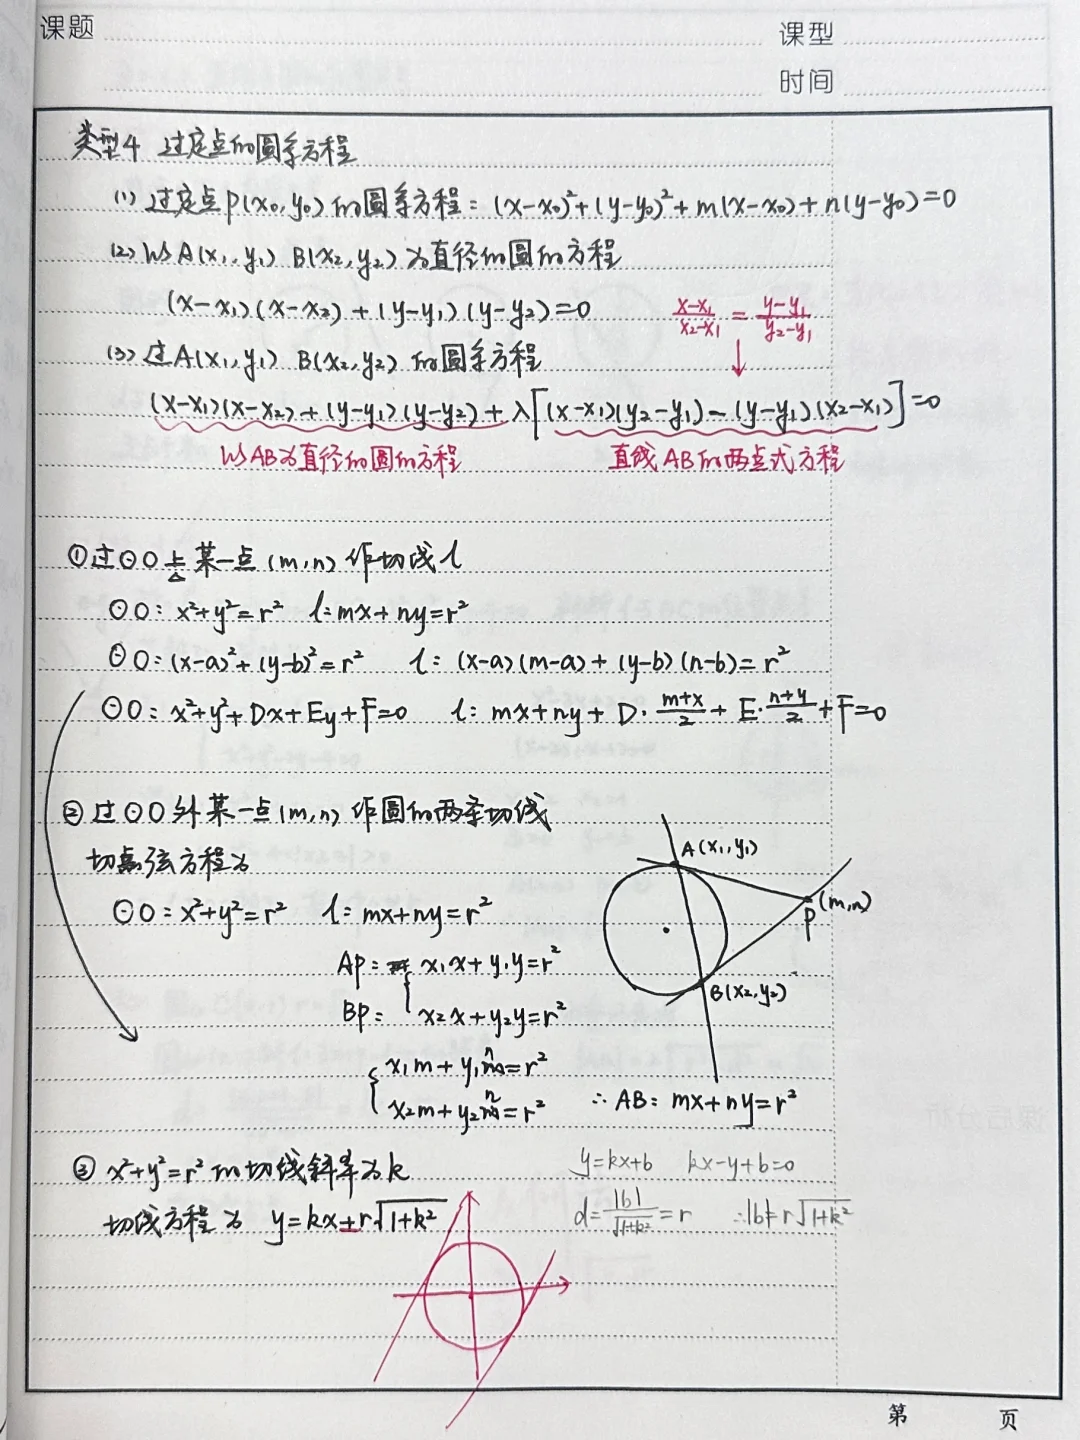 课题
课型
时间
类型4 过定点的圆系方程
(1) 过定点P(x₀, y₀) 的圆系方程: (x-x₀)²+(y-y₀)²+m(x-x₀)+n(y-y₀)=0
(2) 以A(x₁, y₁) B(x₂, y₂) 为直径的圆的方程
(x-x₁)(x-x₂)+(y-y₁)(y-y₂)=0
(x-x₁)/(x₂-x₁) = (y-y₁)/(y₂-y₁)
(3) 过A(x₁, y₁) B(x₂, y₂) 的圆系方程
(x-x₁)(x-x₂)+(y-y₁)(y-y₂)+λ[(x-x₁)(y₂-y₁)-(y-y₁)(x₂-x₁)]=0
以AB为直径的圆的方程 直线AB的两点式方程
①过⊙O上某一点(m,n)作切线l
⊙O: x²+y²=r² l: mx+ny=r²
⊙O: (x-a)²+(y-b)²=r² l: (x-a)(m-a)+(y-b)(n-b)=r²
⊙O: x²+y²+Dx+Ey+F=0 l: mx+ny+D·(m+x)/2+E·(n+y)/2+F=0
②过⊙O外某一点(m,n)作圆的两条切线
切点弦方程为
A(x₁,y₁)
P(m,n)
B(x₂,y₂)
⊙O: x²+y²=r² l: mx+ny=r²
AP: x₁x+y₁y=r²
BP: x₂x+y₂y=r²
x₁m+y₁n=r²
x₂m+y₂n=r² ∴AB: mx+ny=r²
③ x²+y²=r²的切线斜率为k
y=kx+b kx-y+b=0
切线方程为 y=kx±r√(1+k²)
d=|b|/√(1+k²)=r ∴|b|=r√(1+k²)
第 页